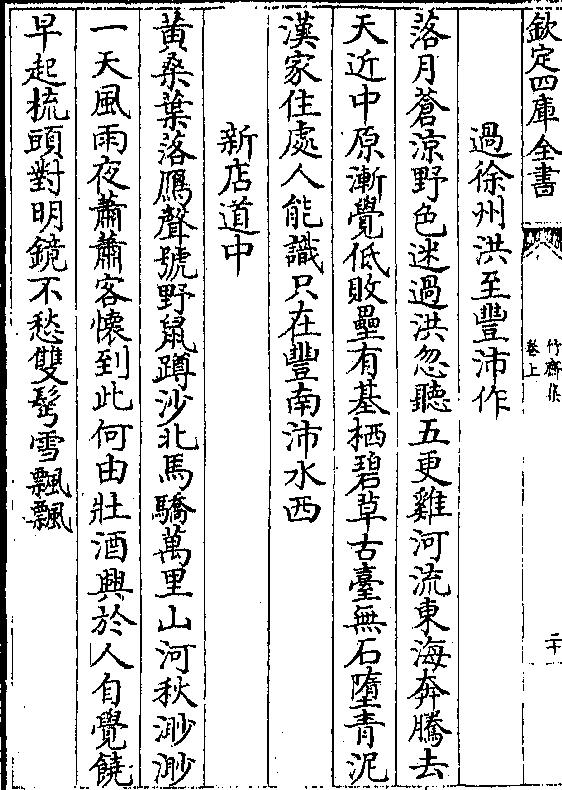 欽定四庫全書
竹齋集
卷上
二十
過徐州洪至豐沛作
落月蒼涼野色迷過洪忽聽五更雞河流東海奔騰去
天近中原漸覺低敗壘有基栖碧草古臺無石墮青泥
漢家住處人能識只在豐南沛水西
新店道中
黄桑葉落鴈聲號野䑕蹲沙北馬驕萬里山河秋渺渺
一天風雨夜蕭蕭客懷到此何由壯酒興於人自覺饒
早起梳頭對明鏡不愁雙髩雪飄飄